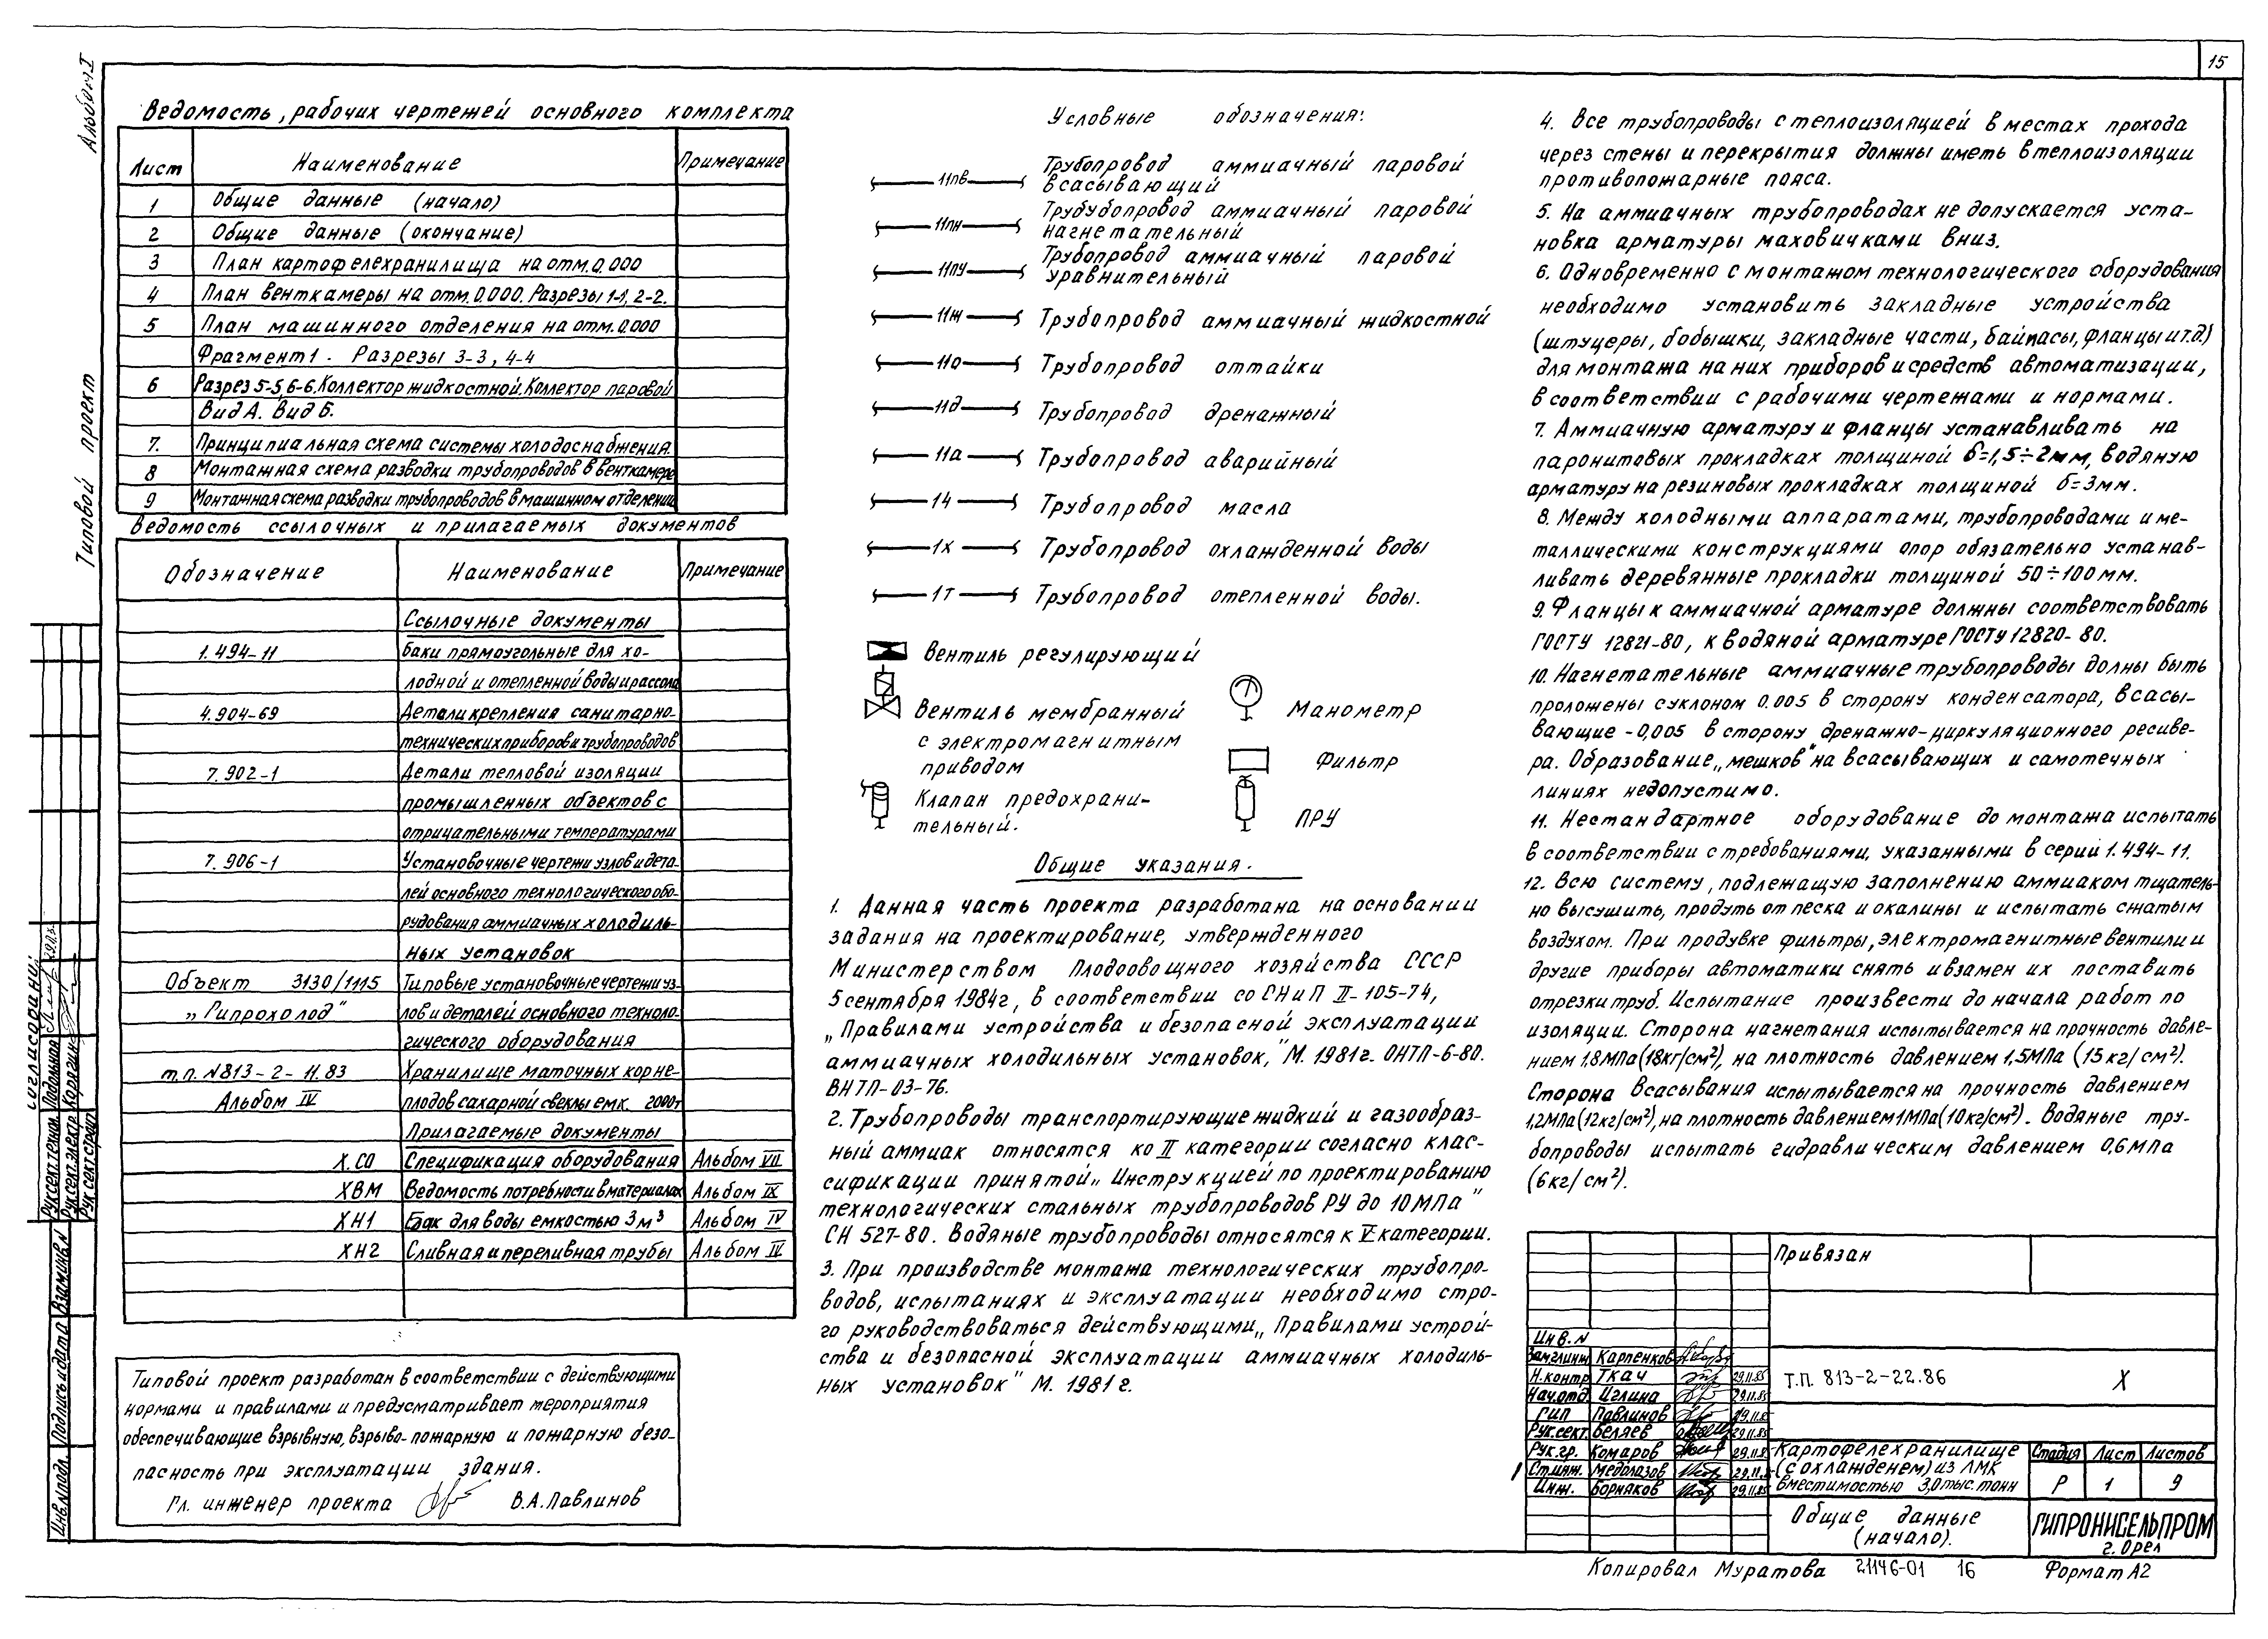 15
Альбом I
Типовой проект
Ведомость рабочих чертежей основного комплекта
Лист Наименование Примечание
1 Общие данные (начало)
2 Общие данные (окончание)
3 План картофелехранилища на отм. 0.000
4 План венткамеры на отм. 0.000. Разрезы 1-1, 2-2.
5 План машинного отделения на отм. 0.000
Фрагмент 1. Разрезы 3-3, 4-4
6 Разрез 5-5, 6-6. Коллектор жидкостной. Коллектор паровой
Вид А. Вид Б.
7. Принципиальная схема системы холодоснабжения.
8 Монтажная схема разводки трубопроводов в венткамере
9 Монтажная схема разводки трубопроводов в машинном отделении
Ведомость ссылочных и прилагаемых документов
Обозначение Наименование Примечание
Ссылочные документы
1.494-11 баки прямоугольные для хо-
лодной и отепленной воды и рассола
4.904-69 Детали крепления санитарно-
технических приборов и трубопроводов
7.902-1 Детали тепловой изоляции
промышленных объектов с
отрицательными температурами
7.906-1 Установочные чертежи узлов и дета-
лей основного технологического обо-
рудования аммиачных холодиль-
ных установок
Объект 3130/1115 Типовые установочные чертежи уз-
„Гипрохолод" лов и деталей основного техноло-
гического оборудования
т.п. N813-2-11.83 Хранилище маточных корне-
Альбом IV плодов сахарной свеклы емк. 2000т
Прилагаемые документы
Х.СО Спецификация оборудования Альбом VII
ХВМ Ведомость потребности в материалах Альбом IX
ХН1 Бак для воды емкостью 3м³ Альбом IV
ХН2 Сливная и переливная трубы Альбом IV
Типовой проект разработан в соответствии с действующими
нормами и правилами и предусматривает мероприятия
обеспечивающие взрывную, взрыво-пожарную и пожарную безо-
пасность при эксплуатации здания.
Гл. инженер проекта В.А.Павлинов
Условные обозначения:
11пв Трубопровод аммиачный паровой
всасывающий
11пн Трубубопровод аммиачный паровой
нагнетательный
11пу Трубопровод аммиачный паровой
уравнительный
11ж Трубопровод аммиачный жидкостной
11о Трубопровод оттайки
11д Трубопровод дренажный
11а Трубопровод аварийный
14 Трубопровод масла
1х Трубопровод охлажденной воды
1т Трубопровод отепленной воды.
Вентиль регулирующий
Вентиль мембранный
с электромагнитным
приводом
Клапан предохрани-
тельный.
Манометр
Фильтр
ПРУ
Общие указания.
1. Данная часть проекта разработана на основании
задания на проектирование, утвержденного
Министерством Плодоовощного хозяйства СССР
5 сентября 1984г, в соответствии со СНиП II-105-74,
„Правилами устройства и безопасной эксплуатации
аммиачных холодильных установок," М. 1981г. ОНТП-6-80.
ВНТП-03-76.
2. Трубопроводы транспортирующие жидкий и газообраз-
ный аммиак относятся ко II категории согласно клас-
сификации принятой „Инструкцией по проектированию
технологических стальных трубопроводов РУ до 10 МПа"
СН 527-80. Водяные трубопроводы относятся к V категории.
3. При производстве монтажа технологических трубопро-
водов, испытаниях и эксплуатации необходимо стро-
го руководствоваться действующими „Правилами устрой-
ства и безопасной эксплуатации аммиачных холодиль-
ных установок" М. 1981г.
4. Все трубопроводы с теплоизоляцией в местах прохода
через стены и перекрытия должны иметь в теплоизоляции
противопожарные пояса.
5. На аммиачных трубопроводах не допускается уста-
новка арматуры маховичками вниз.
6. Одновременно с монтажом технологического оборудования
необходимо установить закладные устройства
(штуцеры, бобышки, закладные части, байпасы, фланцы и т.д.)
для монтажа на них приборов и средств автоматизации,
в соответствии с рабочими чертежами и нормами.
7. Аммиачную арматуру и фланцы устанавливать на
паронитовых прокладках толщиной δ=1,5÷2мм, водяную
арматуру на резиновых прокладках толщиной δ=3мм.
8. Между холодными аппаратами, трубопроводами и ме-
таллическими конструкциями опор обязательно устанав-
ливать деревянные прокладки толщиной 50÷100мм.
9. Фланцы к аммиачной арматуре должны соответствовать
ГОСТУ 12821-80, к водяной арматуре ГОСТУ 12820-80.
10. Нагнетательные аммиачные трубопроводы долны быть
проложены с уклоном 0.005 в сторону конденсатора, всасы-
вающие -0,005 в сторону дренажно-циркуляционного ресиве-
ра. Образование „мешков" на всасывающих и самотечных
линиях недопустимо.
11. Нестандартное оборудование до монтажа испытать
в соответствии с требованиями, указанными в серий 1.494-11.
12. Всю систему, подлежащую заполнению аммиаком тщатель-
но высушить, продуть от песка и окалины и испытать сжатым
воздухом. При продувке фильтры, электромагнитные вентили и
другие приборы автоматики снять и взамен их поставить
отрезки труб. Испытание произвести до начала работ по
изоляции. Сторона нагнетания испытывается на прочность давле-
нием 1,8МПа(18кг/см²), на плотность давлением 1,5МПа (15кг/см²).
Сторона Всасывания испытывается на прочность давлением
1,2МПа(12кг/см²), на плотность давлением 1МПа(10кг/см²). Водяные тру-
бопроводы испытать гидравлическим давлением 0,6мпа
(6кг/см²).
Привязан
Инв.N
Зам.гл.инж Карпенков
Н.контр Ткач 29.11.85
Нач.отд. Иглина 29.11.85
ГИП Павлинов 29.11.85
Рук.сект. Беляев 29.11.85
Рук.гр. Комаров 29.11.85
Ст.инж. Медолазов 29.11.85
Инж. Борняков 29.11.85
Т.П. 813-2-22.86 Х
Картофелехранилище
(с охлажденем) из ЛМК
вместимостью 3,0тыс.тонн
Стадия Лист Листов
Р 1 9
Общие данные
(начало).
ГИПРОНИСЕЛЬПРОМ
г. Орел
Копировал Муратова 21146-01 16 Формат А2
Согласовано:
Рук.сект.технол. Подольная
Рук.сект.электр. Корягин
Рук.сект.строит.
Взам.инв.N
Подпись и дата
Инв.Nподл.